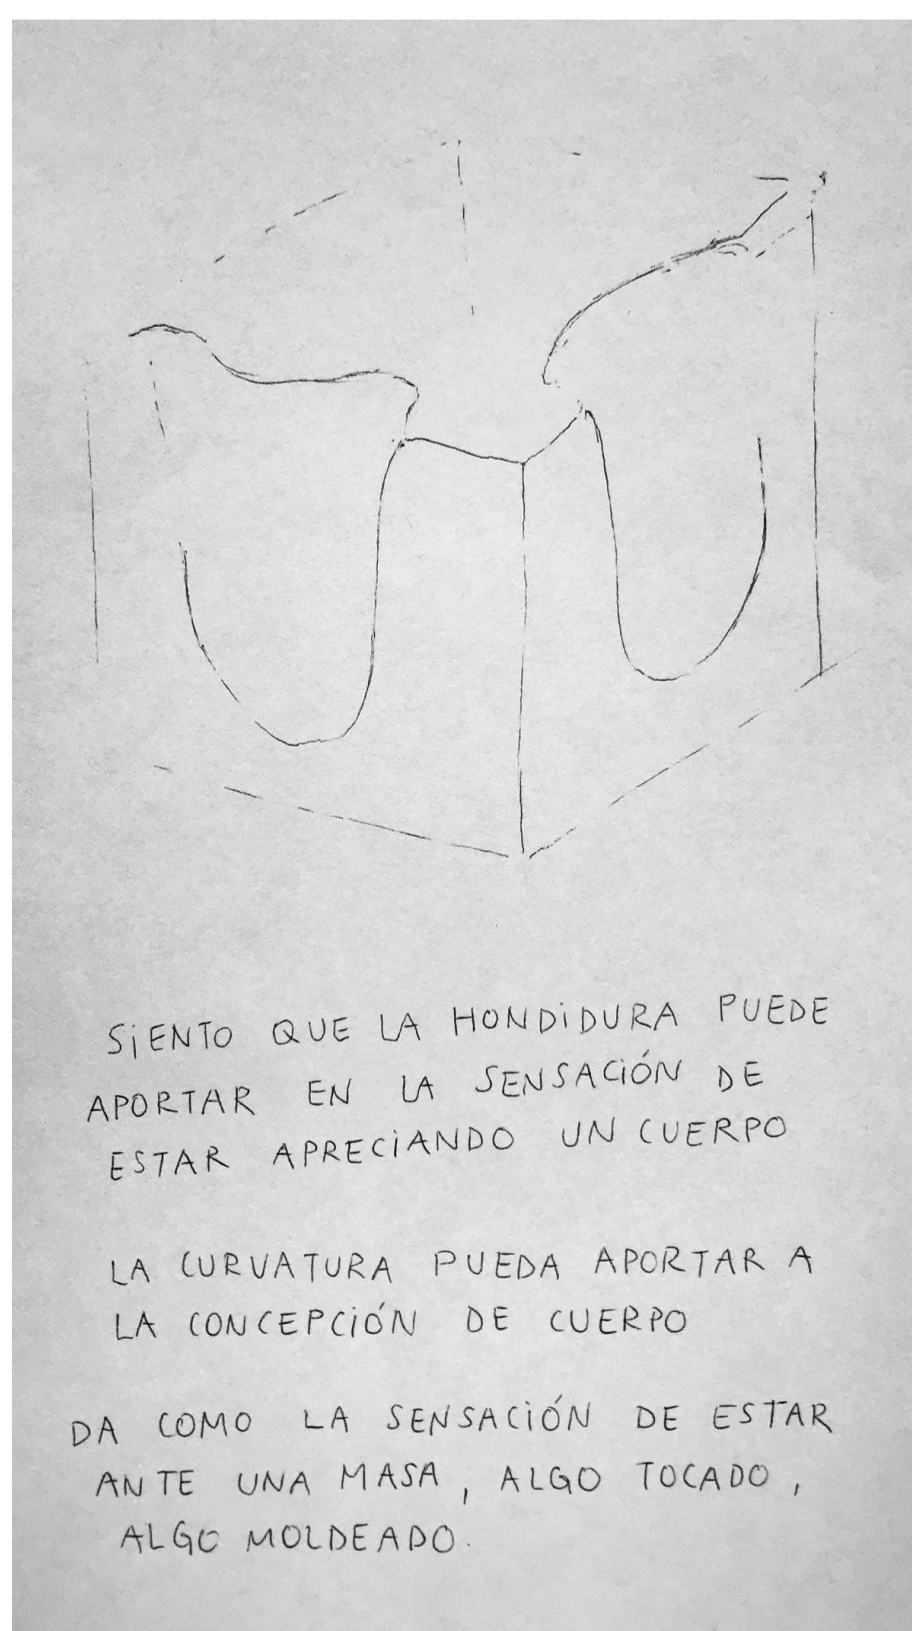 SiENTO QUE LA HONDiDURA PUEDE
APORTAR EN LA SENSACiÓN DE
ESTAR APRECiANDO UN CUERPO
LA CURVATURA PUEDA APORTAR A
LA CONCEPCiÓN DE CUERPO
DA COMO LA SENSACiÓN DE ESTAR
ANTE UNA MASA, ALGO TOCADO,
ALGO MOLDEADO.